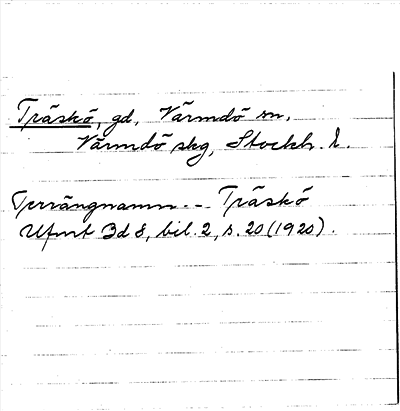 Träskö, gd, Värmdö sn,
Värmdö skg, Stockh. l.
Terrängnamn -- Träskö
Ufmt Bd 8, bil. 2, s. 20 (1920).